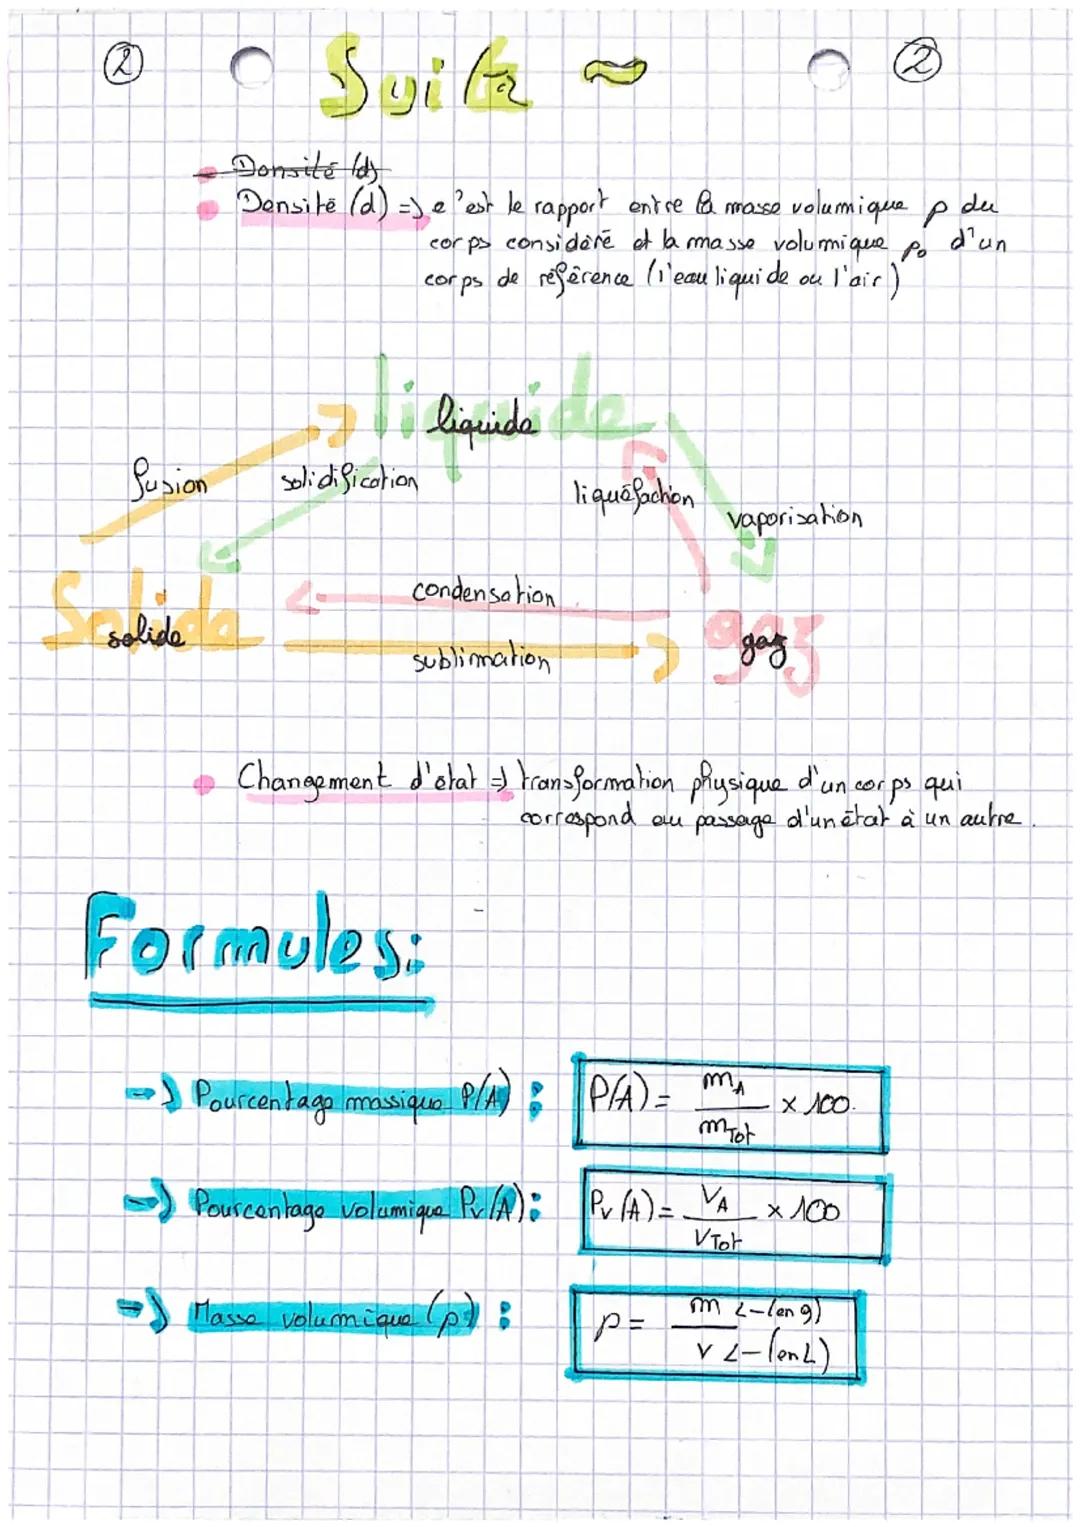 2 Suite ~ 2
Densité (d)
Densité (d) => c'est le rapport entre la masse volumique ρ du
corps considéré et la masse volumique ρ₀ d'un
corps de référence (l'eau liquide ou l'air)
liquide
liquide
fusion solidification liquéfaction vaporisation
condensation
Solide gaz
solide gaz
sublimation
Changement d'état => transformation physique d'un corps qui
correspond au passage d'un état à un autre.
Formules:
-> Pourcentage massique P(A) : P(A) = m_A / m_Tot × 100.
-> Pourcentage volumique Pv(A) : Pv(A) = V_A / V_Tot × 100
-> Masse volumique (ρ) : ρ = m <-(en g) / v <-(en L)